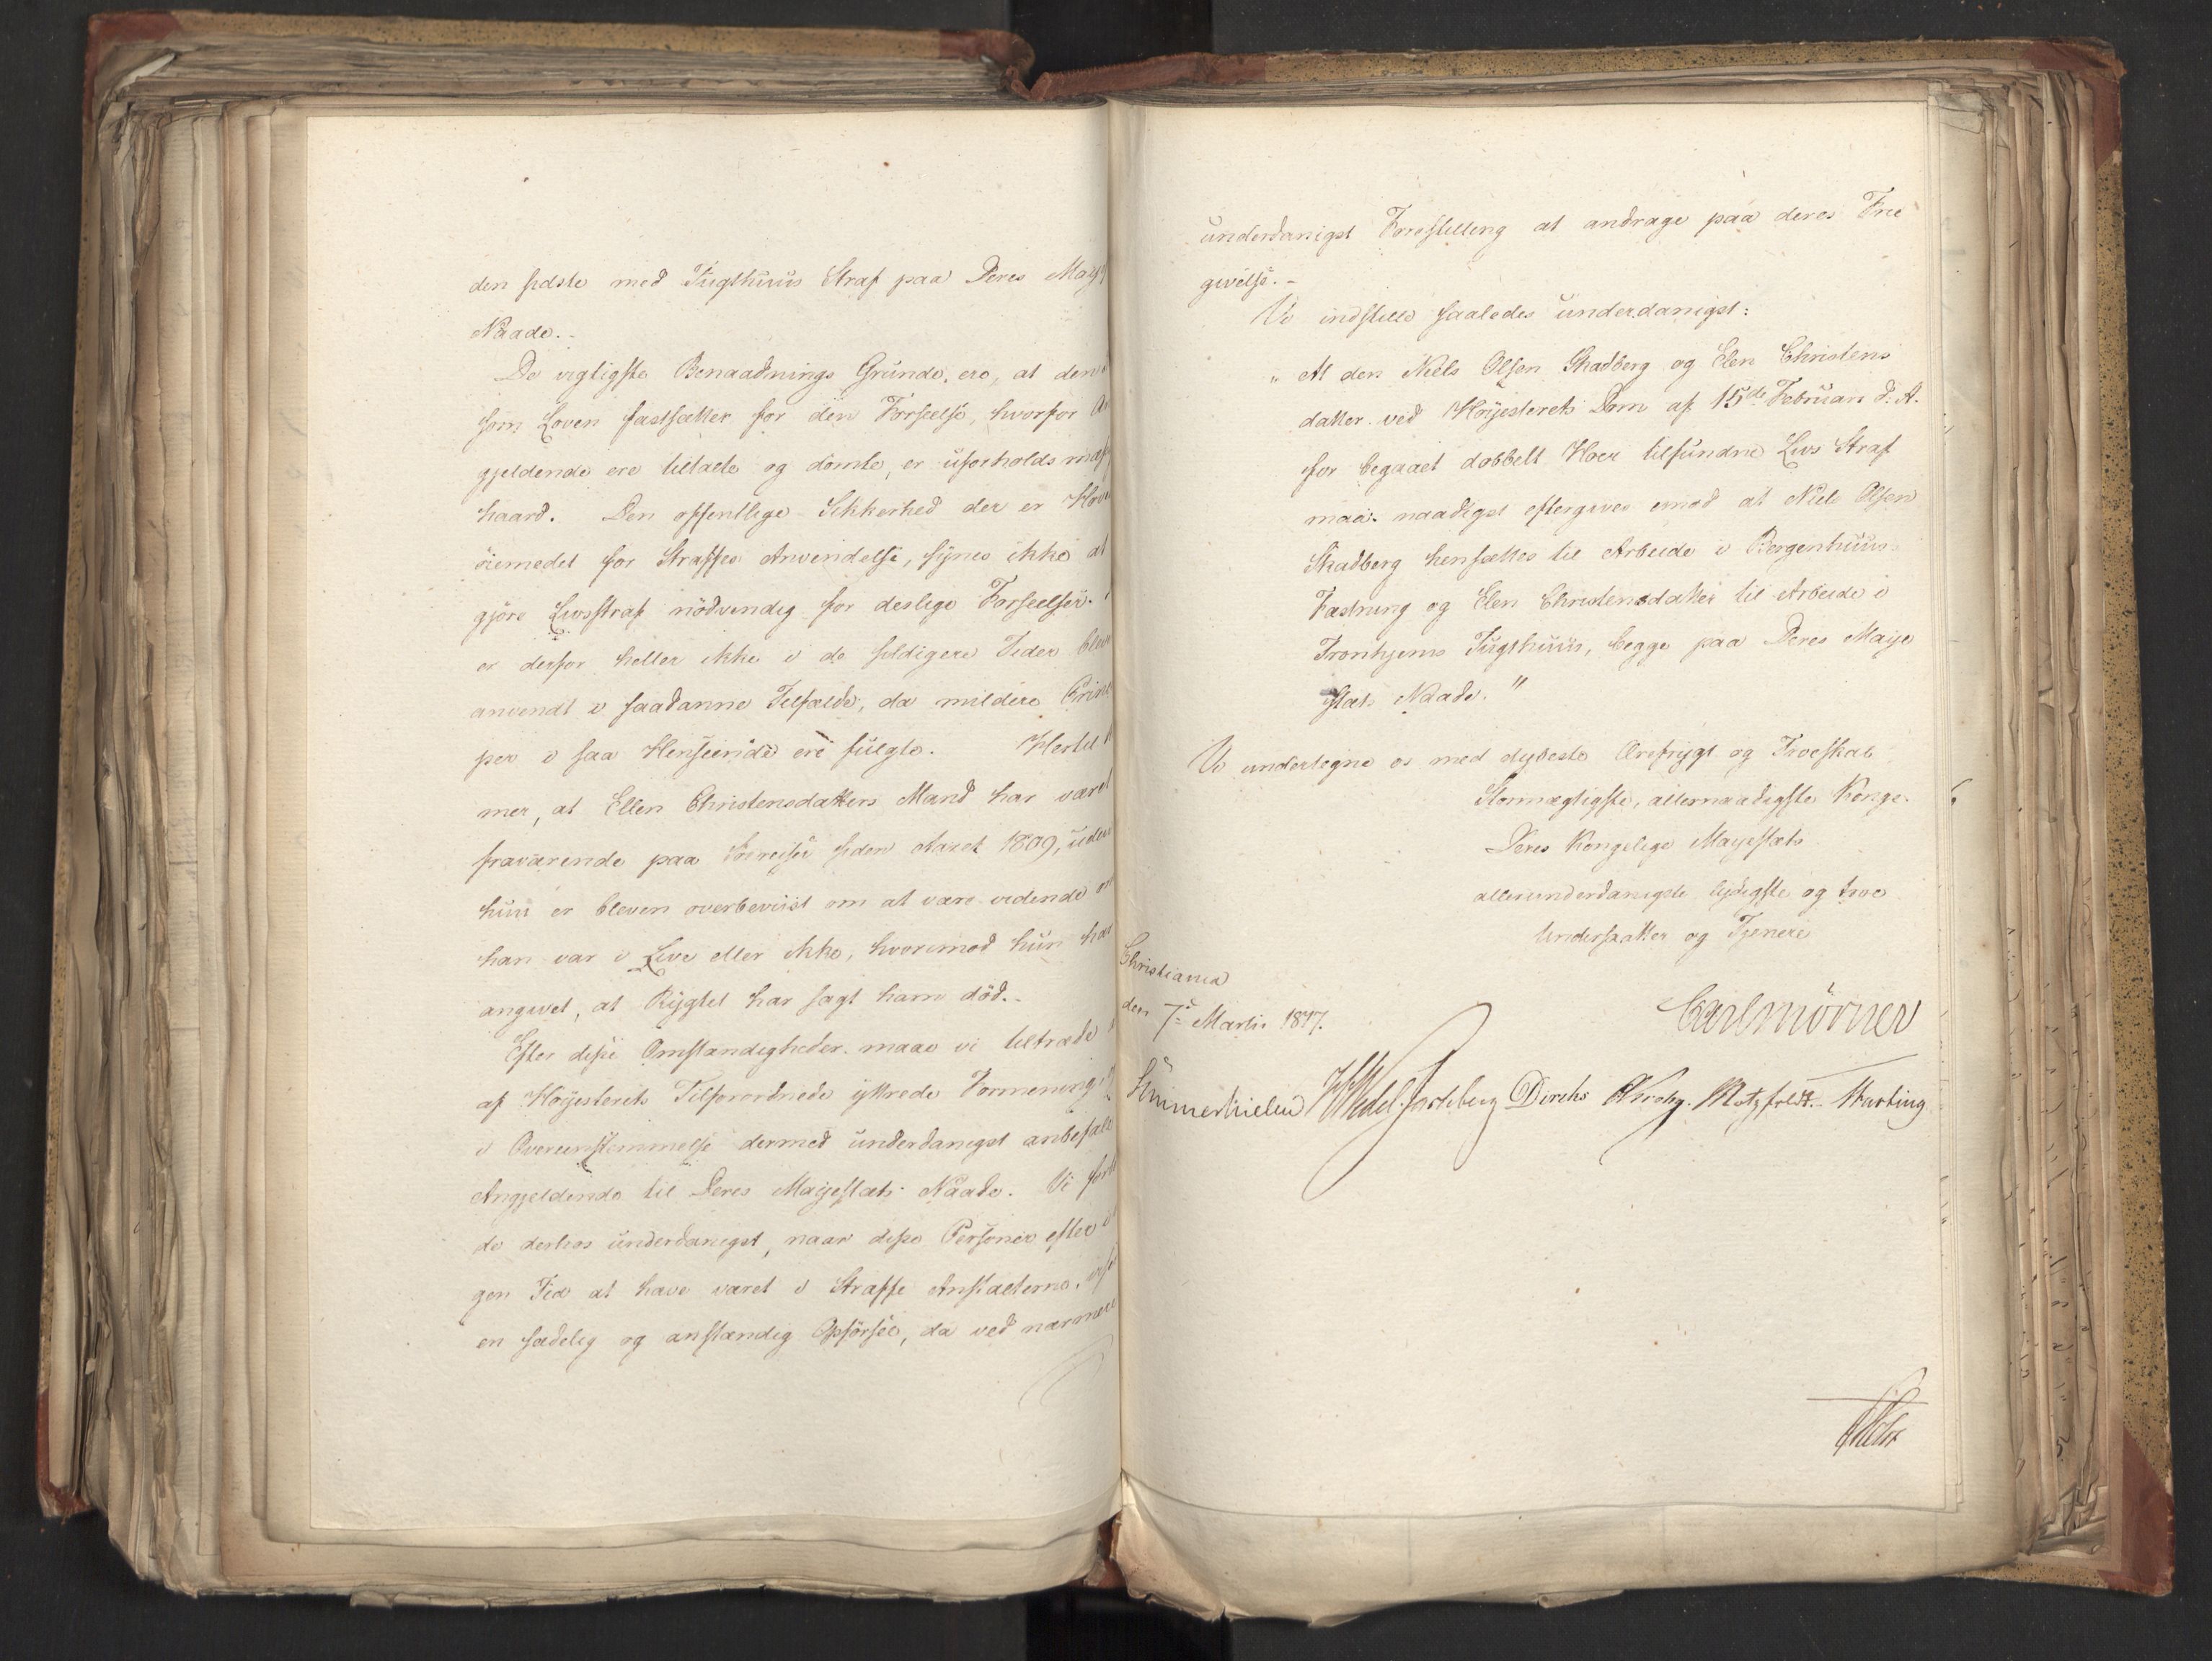 den sidste med Tugthuus Straf paa Deres Maj
Naade.-
De vigtigste Benaadnings Grunde, ere, at den
som Loven fastsætter for den Forseelse, hvorfor An
gjeldende ere tiltalte og dömte, er uforholdsmæs
haard. Den offentlige Sikkerhed der er Hov
öiemedet for Straffes Anvendelse, synes ikke at
gjöre Livsstraf nödvendig for deslige Forseelser.
er derfor heller ikke i de sildigere Tider bleve
anvendt i saadanne Tilfælde, da mildere Princi
per i saa Henseende ere fulgte. Hertil
mer, at Ellen Christensdatters Mand har været
fraværende paa Söereiser siden Aaret 1809, uden
hun er bleven overbeviist om at være vidende om
han var i Live eller ikke, hvorimod hun har
angivet, at Rygtet har sagt ham död.-
Efter disse Omstændigheder maae vi tiltræde
af Höyesterets Tilforordnede yttrede Formening
i Overeensstemmelse dermed underdanigst anbefale
Angjeldende til Deres Majestæts Naade. Vi
de derhos underdanigst, naar disse Personer efter
gen Tid at have været i Straffe Anstalterne,
en sædelig og anstændig Opförsel, da ved nærmere
underdanigst Forestilling at andrage paa deres Frie
givelse.-
Vi indstille saaledes underdanigst:
"At den Niels Olsen Skadberg og Elen Christens
datter ved Höyesterets Dom af 15de Februari d. A.
for begaaet dobbelt Hoer tilfundne Livs Straf
maa naadigst eftergives imod at Niels Olsen
Skadberg hensættes til Arbeide i Bergenhuus
Fæstning og Elen Christensdatter til Arbeide i
Tronhjems Tugthuus, begge paa Deres Maje
stæts Naade."
Vi undertegne os med dybeste Ærefrygt og Troeskab
Stormægtigste, allernaadigste Konge.
Deres Kongelige Majestæts
allerunderdanigste lydigste og troe
Undersaatter og Tjenere
Christiania
den 7de Martii 1817.
Carl Mörner
Sommerhielm Wedel Jarlsberg Diriks Krohg. Motzfeldt. Harting